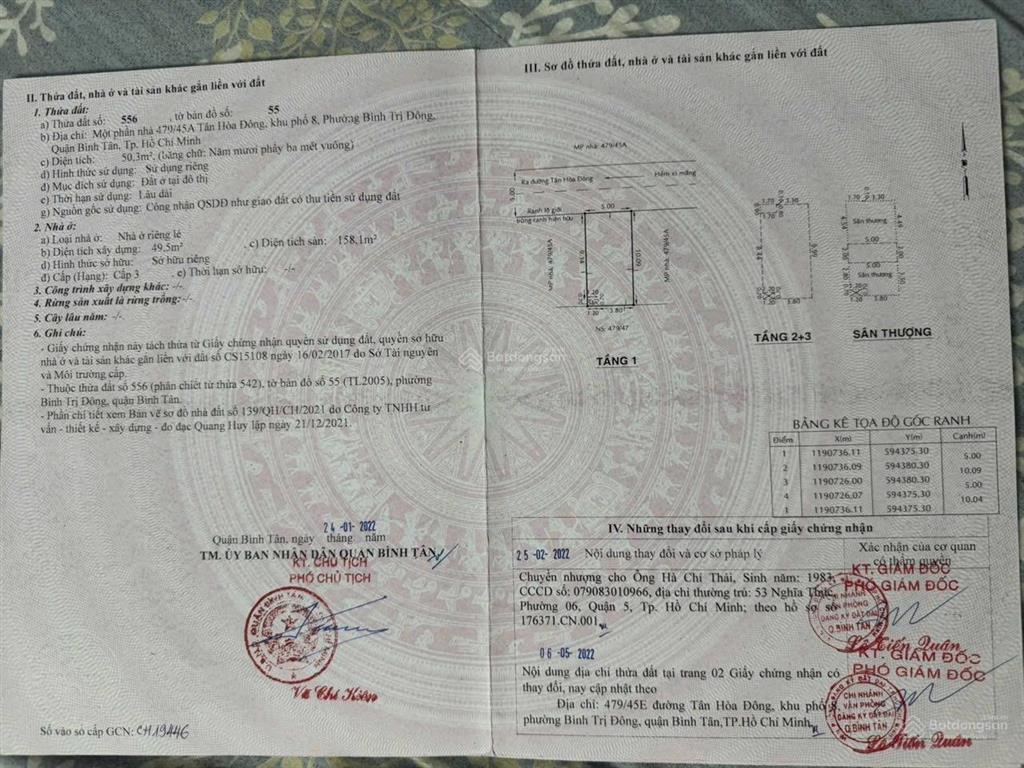 II. Thửa đất, nhà ở và tài sản khác gắn liền với đất
1. Thửa đất:
a) Thửa đất số: 556 , tờ bản đồ số: 55
b) Địa chỉ: Một phần nhà 479/45A Tân Hòa Đông, khu phố 8, Phường Bình Trị Đông,
Quận Bình Tân, Tp. Hồ Chí Minh
c) Diện tích: 50.3m², (bằng chữ: Năm mươi phẩy ba mét vuông)
d) Hình thức sử dụng: Sử dụng riêng
đ) Mục đích sử dụng: Đất ở tại đô thị
e) Thời hạn sử dụng: Lâu dài
g) Nguồn gốc sử dụng: Công nhận QSDĐ như giao đất có thu tiền sử dụng đất
2. Nhà ở:
a) Loại nhà ở: Nhà ở riêng lẻ
b) Diện tích xây dựng: 49.5m² , c) Diện tích sàn: 158.1m²
d) Hình thức sở hữu: Sở hữu riêng
đ) Cấp (Hạng): Cấp 3 , e) Thời hạn sở hữu: -/-
3. Công trình xây dựng khác: -/-
4. Rừng sản xuất là rừng trồng: -/-
5. Cây lâu năm: -/-
6. Ghi chú:
- Giấy chứng nhận này tách thửa từ Giấy chứng nhận quyền sử dụng đất, quyền sở hữu
nhà ở và tài sản khác gắn liền với đất số CS15108 ngày 16/02/2017 do Sở Tài nguyên
và Môi trường cấp.
- Thuộc thửa đất số 556 (phân chiết từ thửa 542), tờ bản đồ số 55 (TL2005), phường
Bình Trị Đông, quận Bình Tân.
- Phần chi tiết xem Bản vẽ sơ đồ nhà đất số 139/QH/CH/2021 do Công ty TNHH tư
vấn - thiết kế - xây dựng - đo đạc Quang Huy lập ngày 21/12/2021.
24 -01- 2022
Quận Bình Tân, ngày tháng năm
TM. ỦY BAN NHÂN DÂN QUẬN BÌNH TÂN
KT. CHỦ TỊCH
PHÓ CHỦ TỊCH
Số vào sổ cấp GCN: CH19446
III. Sơ đồ thửa đất, nhà ở và tài sản khác gắn liền với đất
MP nhà: 479/45A
Ra đường Tân Hòa Đông
Hẻm xi măng
5.00
Ranh lộ giới
trùng ranh hiện hữu
5.00
MP nhà: 479/45A
9.94
10.09
MP nhà: 479/45A
1.20
1.20
3.80
NS: 479/47
TẦNG 1
1.70
3.30
1.70
9.99
1.20
3.80
TẦNG 2+3
1.70
3.30
Sân thượng
4.54
4.49
5.00
5.00
Sân thượng
1.20
3.80
SÂN THƯỢNG
BẢNG KÊ TỌA ĐỘ GÓC RANH
Điểm X(m) Y(m) Cạnh(m)
1 1190736.11 594375.30
5.00
2 1190736.09 594380.30
10.09
3 1190726.00 594380.30
5.00
4 1190726.07 594375.30
10.04
1 1190736.11 594375.30
IV. Những thay đổi sau khi cấp giấy chứng nhận
25 -02- 2022 Nội dung thay đổi và cơ sở pháp lý
Xác nhận của cơ quan
có thẩm quyền
Chuyển nhượng cho Ông Hà Chí Thái, Sinh năm: 1983,
CCCD số: 079083010966, địa chỉ thường trú: 53 Nghĩa Thục,
Phường 06, Quận 5, Tp. Hồ Chí Minh; theo hồ sơ số
176371.CN.001
KT. GIÁM ĐỐC
PHÓ GIÁM ĐỐC
CHI NHÁNH
VĂN PHÒNG
ĐĂNG KÝ ĐẤT ĐAI
Q.BÌNH TÂN
Lê Tiến Quân
06 -05- 2022
Nội dung địa chỉ thửa đất tại trang 02 Giấy chứng nhận có
thay đổi, nay cập nhật theo
Địa chỉ: 479/45E đường Tân Hòa Đông, khu phố 8,
phường Bình Trị Đông, quận Bình Tân,TP.Hồ Chí Minh
KT. GIÁM ĐỐC
PHÓ GIÁM ĐỐC
CHI NHÁNH
VĂN PHÒNG
ĐĂNG KÝ ĐẤT ĐAI
Q.BÌNH TÂN
Lê Tiến Quân
Batdongsan
Batdongsan